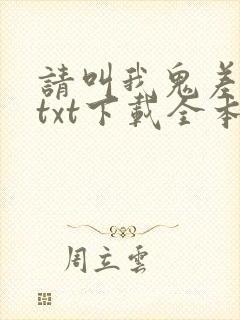 請叫我鬼差
txt下載全本
周立雲